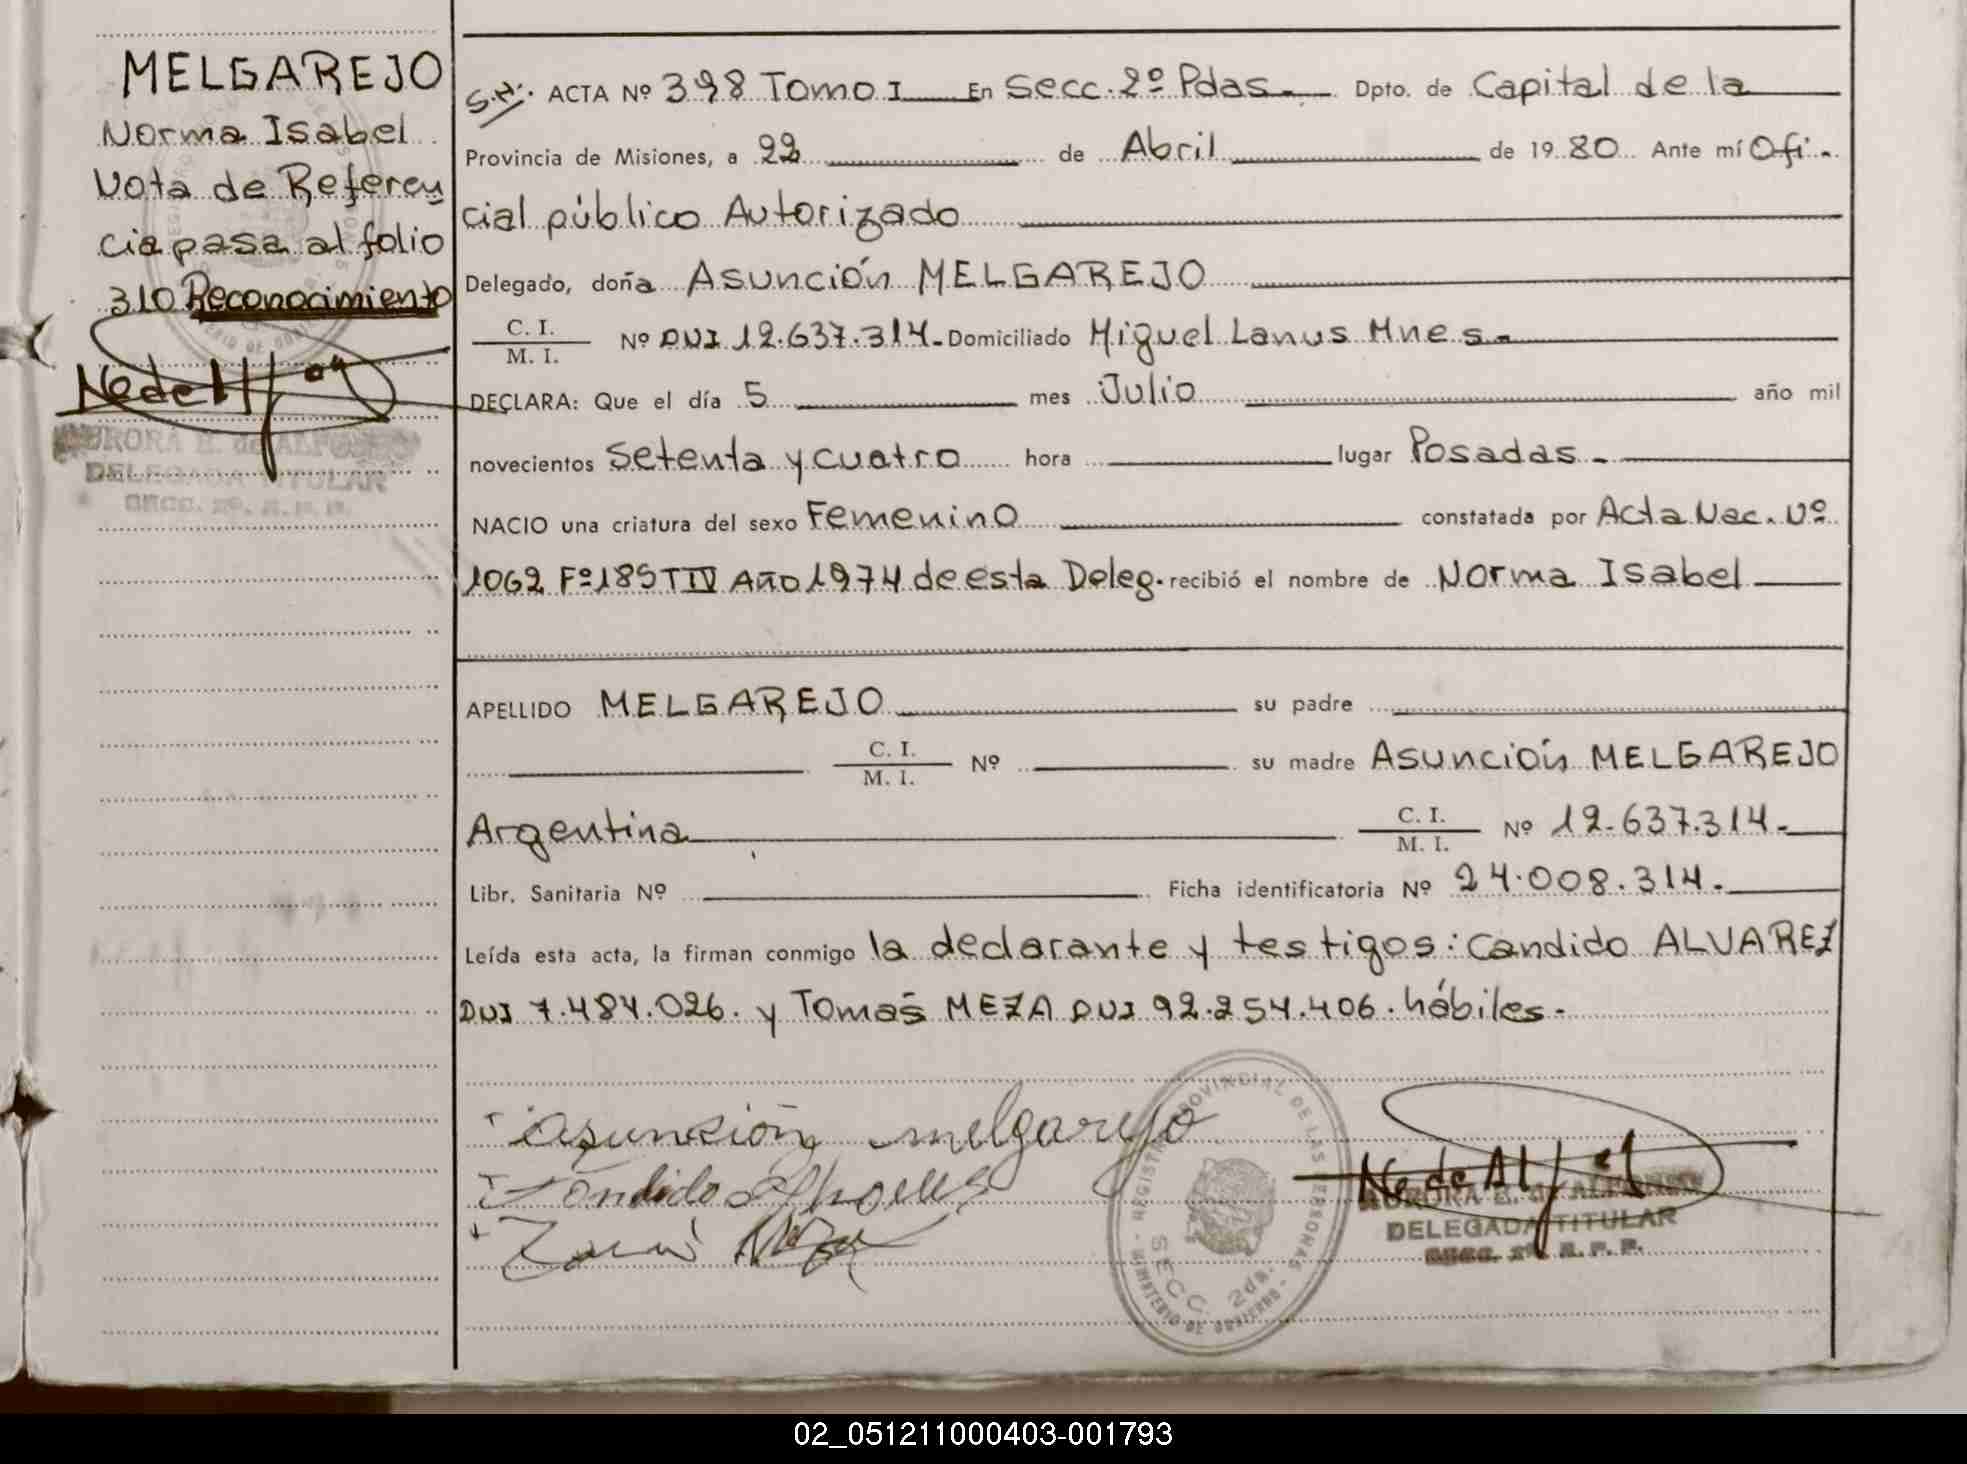 MELGAREJO
Norma Isabel
Nota de Referen
cia pasa al folio
310 Reconocimiento
AURORA E. de ALFONSO
DELEGADA TITULAR
SECC. 2ª. R. P. P.
ACTA Nº 398 Tomo I En Secc. 2º Pdas.- Dpto. de Capital de la
Provincia de Misiones, a 22 de Abril de 1980 Ante mí Ofi-
cial público Autorizado
Delegado, doña Asunción MELGAREJO
C. I.
M. I. Nº DNI 12.637.314.- Domiciliado Miguel Lanus Mnes.-
DECLARA: Que el día 5 mes Julio año mil
novecientos setenta y cuatro hora lugar Posadas.-
NACIO una criatura del sexo Femenino constatada por Acta Nac. Nº
1062 Fº 189 T IV Año 1974 de esta Deleg. recibió el nombre de Norma Isabel
APELLIDO MELGAREJO su padre
C. I.
M. I. Nº su madre Asunción MELGAREJO
Argentina C. I.
M. I. Nº 12.637.314.-
Libr. Sanitaria Nº Ficha identificatoria Nº 24.008.314.-
Leída esta acta, la firman conmigo la declarante y testigos: Candido ALVAREZ
DNI 7.484.026. y Tomás MEZA DNI 92.254.406. hábiles.-
Asunción melgarejo
REGISTRO PROVINCIAL DE LAS PERSONAS
MINISTERIO DE GOBIERNO
SECC. 2da.
AURORA E. de ALFONSO
DELEGADA TITULAR
SECC. 2ª. R. P. P.
02_051211000403-001793